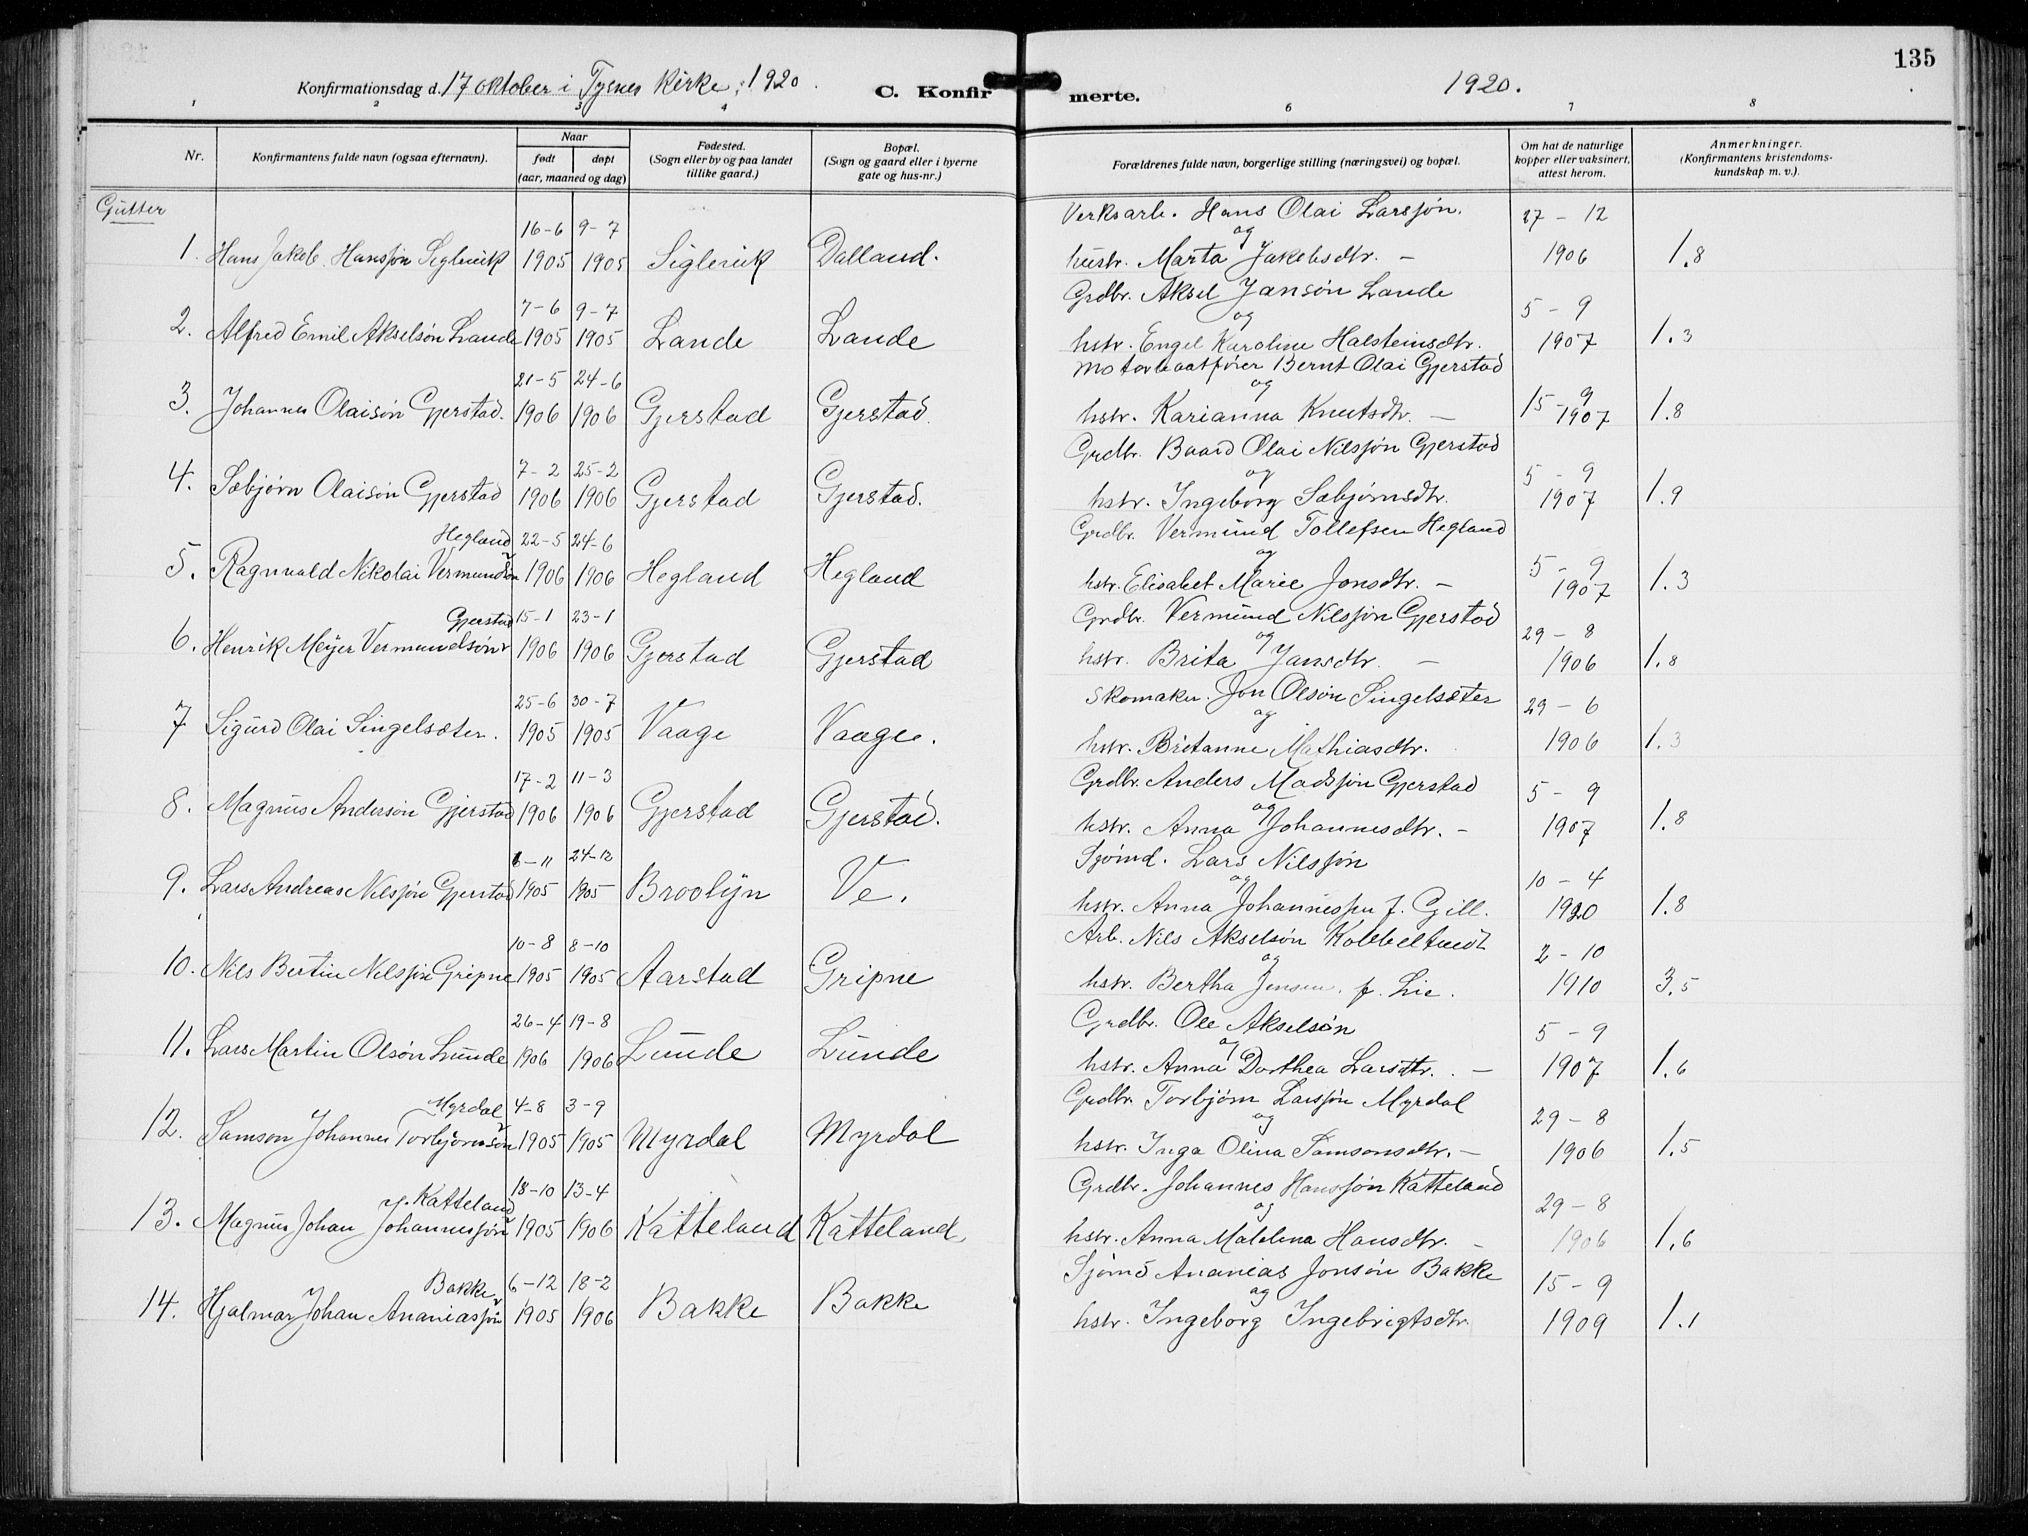 135
Konfirmationsdag d. 17 oktober i Tysnes Kirke, 1920.
C. Konfirmerte.
1920.
1 2 3 4 6 7 8
Nr.
Konfirmantens fulde navn (ogsaa efternavn).
Naar
født døpt
(aar, maaned og dag)
Fødested.
(Sogn eller by og paa landet
tillike gaard.)
Bopæl.
(Sogn og gaard eller i byerne
gate og hus-nr.)
Forældrenes fulde navn, borgerlige stilling (næringsvei) og bopæl.
Om hat de naturlige
kopper eller vaksinert,
attest herom.
Anmerkninger.
(Konfirmantens kristendoms-
kundskap m. v.).
Gutter
16-6 9-7 Verksarb. Hans Olai Larssøn. 27-12
og
1. Hans Jakob Hanssøn Siglevik 1905 1905 Siglevik Dalland. hustr. Marta Jakobsdtr. - 1906 1.8
7-6 9-7 Grdbr. Aksel Jansøn Lande 5-9
og
2. Alfred Emil Akselsøn Lande 1905 1905 Lande Lande hstr. Engel Karoline Halsteinsdtr. 1907 1.3
21-5 24-6 Motorbaatfører Bernt Olai Gjerstad 15-9
og
3. Johannes Olaisøn Gjerstad. 1906 1906 Gjerstad Gjerstad. hstr. Karianna Knutsdtr. - 1907 1.8
7-2 25-2 Grdbr. Baard Olai Nilssøn Gjerstad 5-9
og
4. Sæbjørn Olaisøn Gjerstad 1906 1906 Gjerstad Gjerstad. hstr. Ingeborg Sæbjørnsdtr. 1907 1.9
Hegland 22-5 24-6 Grdbr. Vermund Tollefsen Hegland 5-9
og
5. Ragnvald Nikolai Vermundsøn 1906 1906 Hegland Hegland hstr. Elisabet Marie Jonsdtr. - 1907 1.3
Gjerstad 15-1 23-1 Grdbr. Vermund Nilssøn Gjerstad 29-8
og
6. Henrik Meyer Vermundsøn 1906 1906 Gjerstad Gjerstad hstr. Brita Jansdtr. - 1906 1.8
25-6 30-7 Skomaker Jon Olsøn Singelsæter 29-6
og
7 Sigurd Olai Singelsæter. 1905 1905 Vaage Vaage. hstr. Britanne Mathiasdtr. 1906 1.3
17-2 11-3 Grdbr. Anders Madssøn Gjerstad 5-9
og
8. Magnus Andersøn Gjerstad 1906 1906 Gjerstad Gjerstad. hstr. Anna Johannesdtr. - 1907 1.8
6-11 24-12 Sjømd. Lars Nilssøn 10-4
og
9. Lars Andreas Nilssøn Gjerstad 1905 1905 Broolyn Ve. hstr. Anna Johannessen f. Gill. 1920 1.8
10-8 8-10 Arb. Nils Akselsøn Kobbeltvedt 2-10
og
10. Nils Bertin Nilssøn Gripne 1905 1905 Aarstad Gripne hstr. Bertha Jensen. f. Lie. 1910 3.5
26-4 19-8 Grdbr. Ole Akselsøn 5-9
og
11. Lars Martin Olsøn Lunde 1906 1906 Lunde Lunde hstr. Anna Dorthea Larsdtr. - 1907 1.6
Myrdal 4-8 3-9 Grdbr. Torbjørn Larssøn Myrdal 29-8
og
12. Samson Johannes Torbjørnsøn 1905 1905 Myrdal Myrdal hstr. Inga Olina Samsonsdtr. - 1906 1.5
Katteland 18-10 13-4 Grdbr. Johannes Hanssøn Katteland 29-8
og
13. Magnus Johan Johannessøn 1905 1906 Katteland Katteland, hstr. Anna Malelena Hansdtr. - 1906 1.6
Bakke 6-12 18-2 Sjømd Ananias Jonsøn Bakke 15-9
og
14. Hjalmar Johan Ananiassøn 1905 1906 Bakke Bakke hstr. Ingeborg Ingebrigtsdtr. 1909 1.1